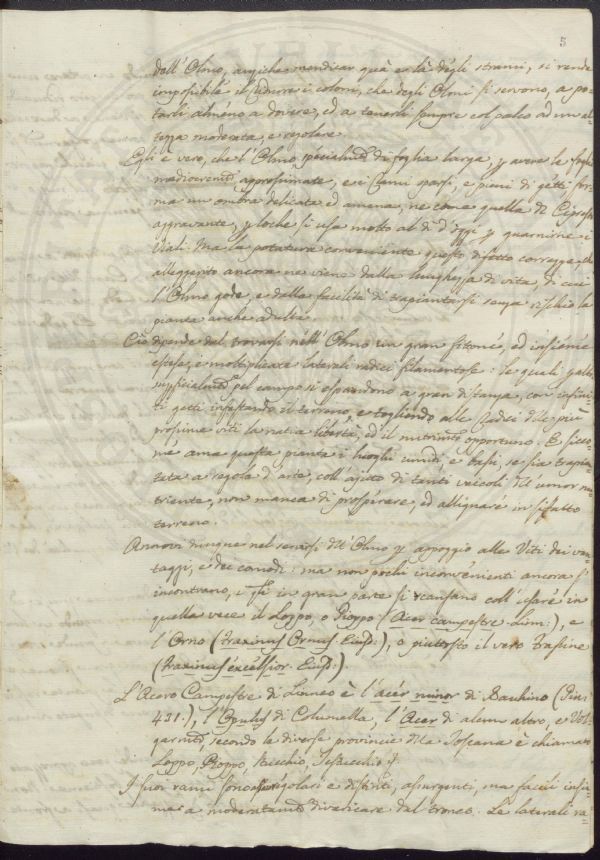 5
dell'Olmo, anziche mendicar quà e là degli strami, si rende
impossibile il ridurre i coloni, che degli Olmi si servono, a po-
tarli almeno a dovere, ed a tenerli sempre col palco ad un al-
tezza moderata, e regolare.
Egli è vero, che l'Olmo specialmte di foglia larga, p avere le foglie
mediocremte approssimate, e i rami sparsi, e pieni di getti for-
ma un ombra delicata ed amena, ne come quella del Cipresso
aggravante, p loche si usa molto al dì d'oggi p guarnirne i
Viali: Ma la potatura conveniente questo difetto corregge, ed
alleggerito ancora ne viene dalla lunghezza di vita, di cui
l'Olmo gode, e dalla facilità di trapiantarsi senza rischio la
pianta anche adulta.
Ciò dipende dal trovarsi nell'Olmo un gran fittone, ed insieme
estese, e moltiplicate laterali radici filamentose: le quali p altro
superficialmte pel campo si espandono a gran distanza, con infini-
ti getti infestando il terreno, e togliendo alle radici delle più
prossime viti la natia libertà, ed il nutrimto opportuno. E sicco-
me ama questa pianta i luoghi umidi, e bassi, se sia trapian-
tata a regola d'arte, coll'ajuto di tanti veicoli del umor nu-
triente, non manca di prosperare, ed allignare in sifatto
terreno.
Annovi dunque nel servirsi del Olmo p appoggio alle Viti dei van-
taggi, e dei comodi: ma non pochi inconvenienti ancora s'
incontrano, i in gran parte si scansano coll'usare in
quella vece il Loppo, o Pioppo (Acer campestre Linn:), e
l'Orno (Fraxinus Ornus Eiusd:), o piuttosto il vero Frassine
(Fraxinus excelsior Eiusd:).
L'Acero Campestre di Linneo è l'acer minor di Bauhino (Pin:
431.), l'Opulus di Columella, l'Acer di alcun altro, e Vol-
garmte, secondo le diverse provincie della Toscana è chiamato
Loppo, Pioppo, Stucchio,
I suoi rami sono regolari e distinti, assurgenti, ma facili insie-
me a moderatamte divaricare dal tronco. Le laterali ra-